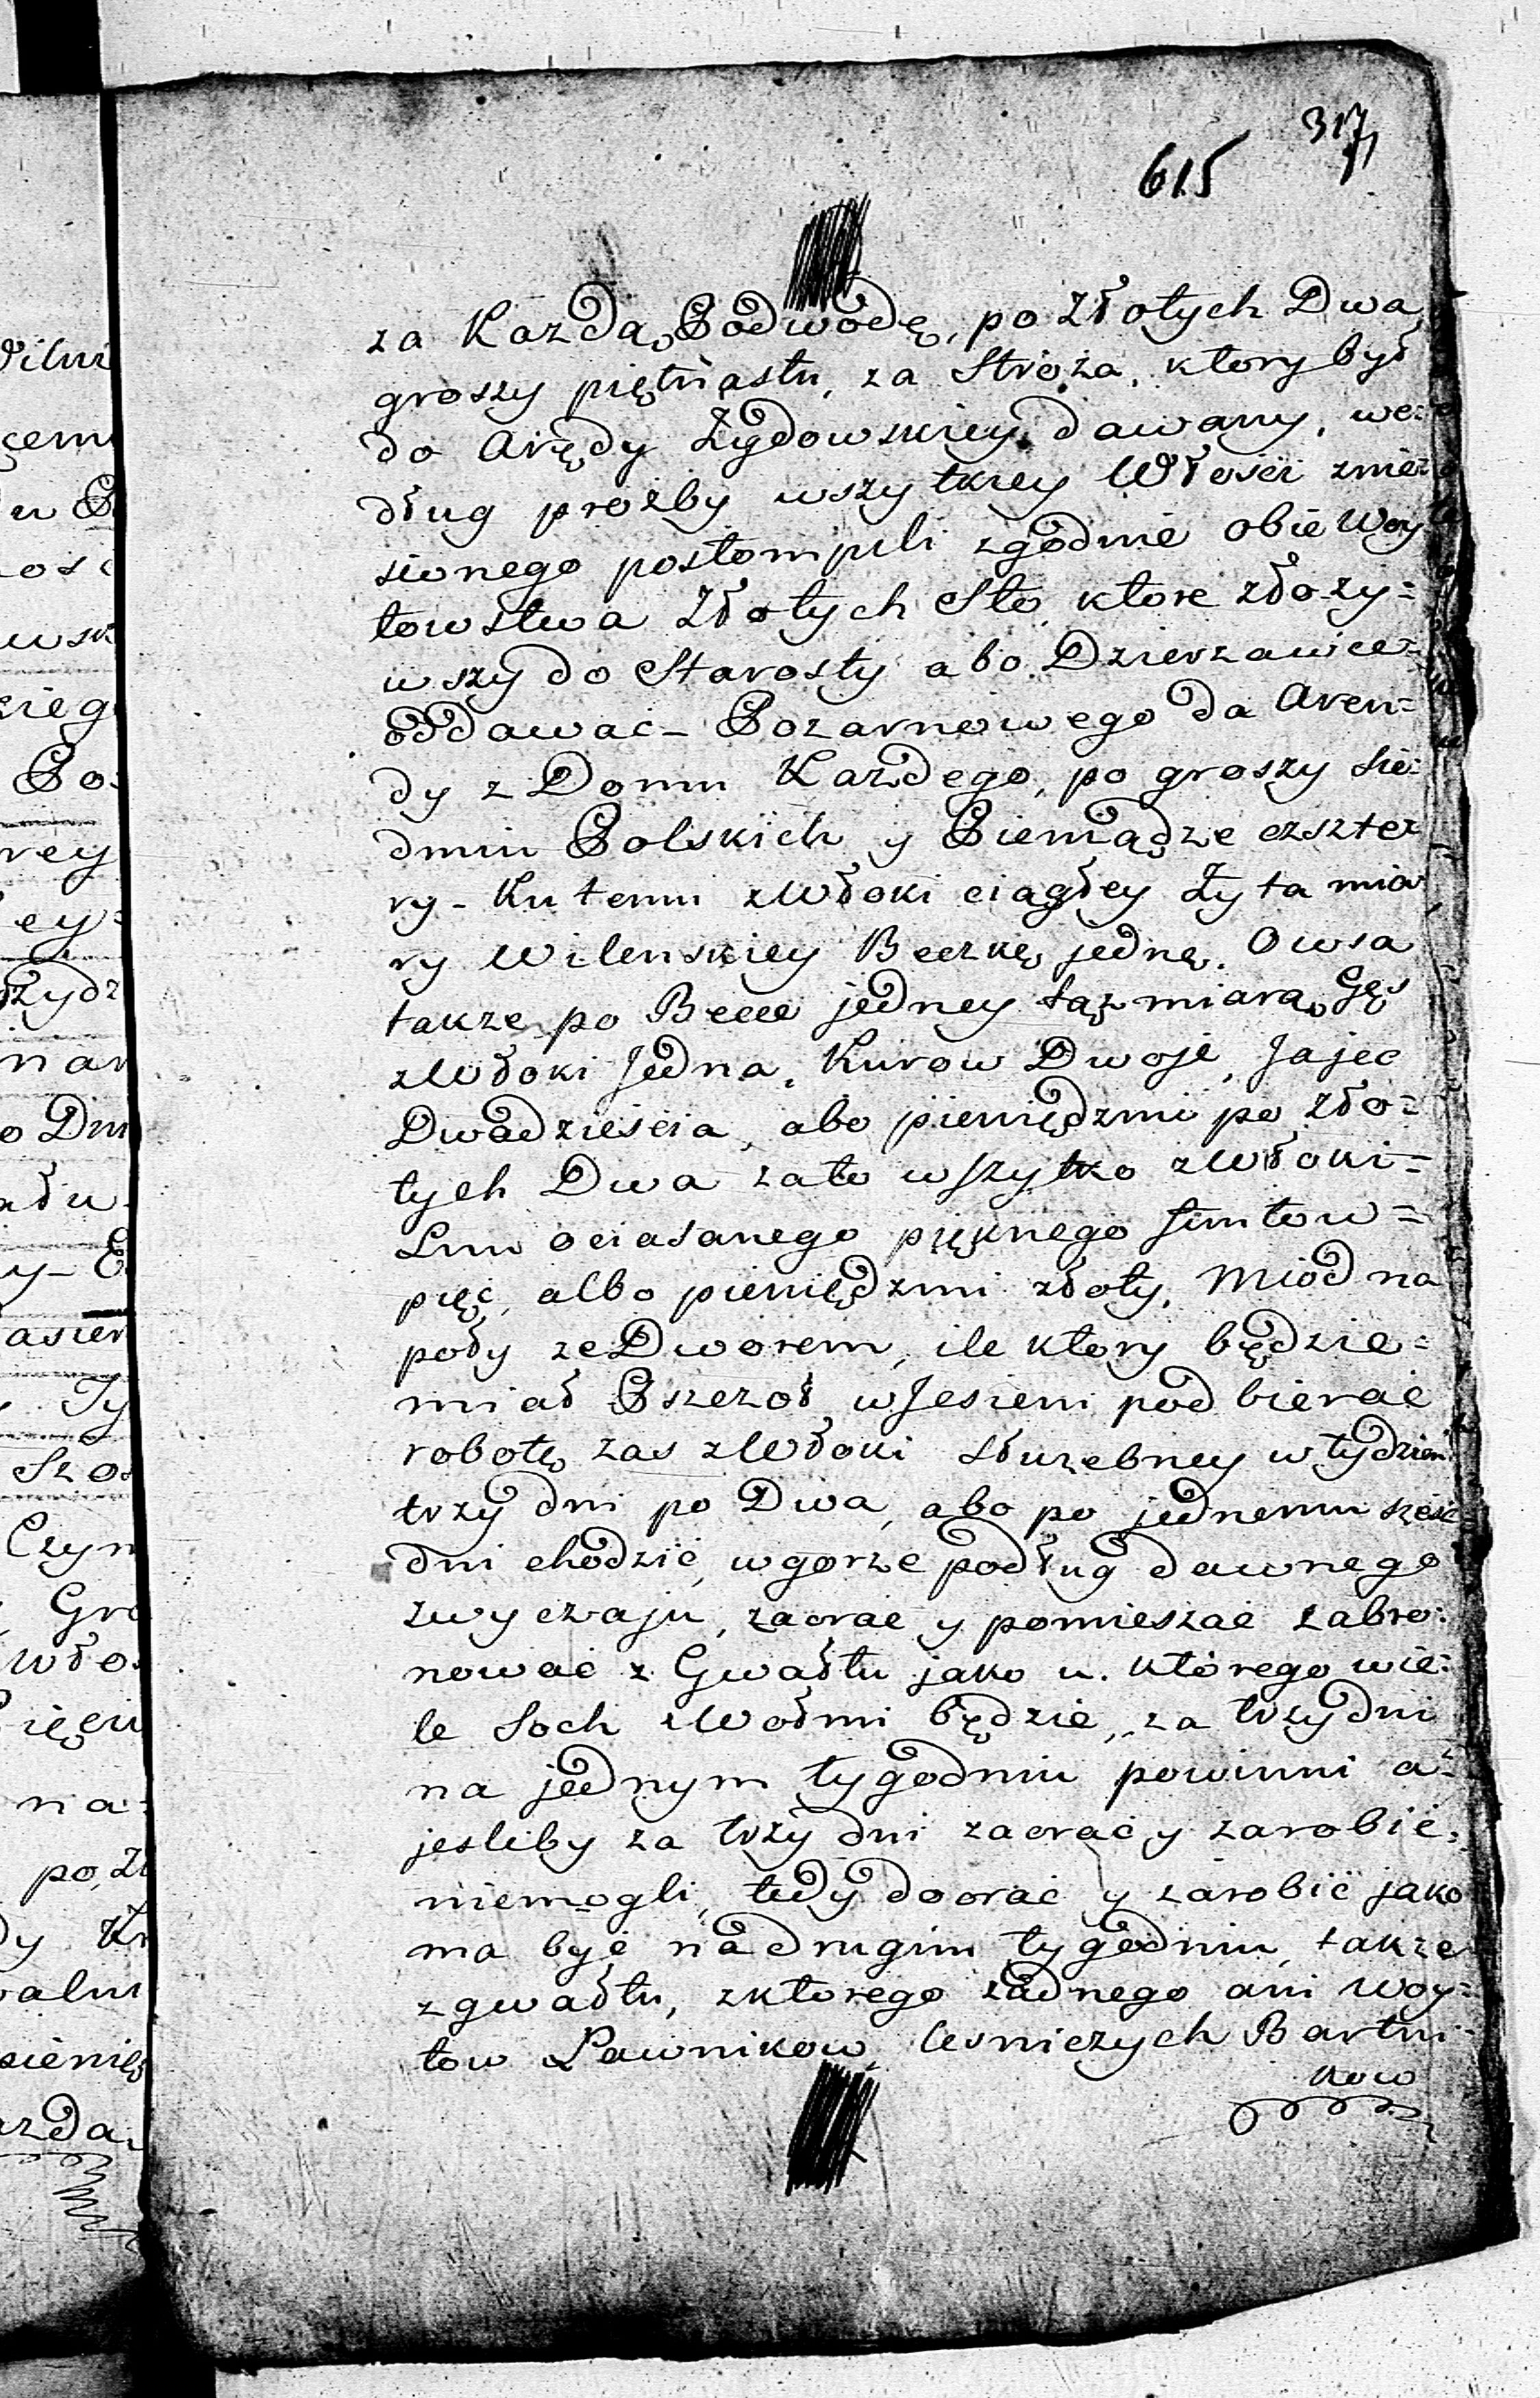 317
615
za Kazdą Podwodę, po Złotych Dwa
groszy piętnastu, za Stroża, ktory był
do Arędy Żydowskiey dawany, we=
dług prozby wszytkiey Włosci znie=
sionego postompili zgodnie obie Woy
towstwa Złotych Sto, ktore złozy=
wszy do Starosty abo Dzierzawce=
oddawać - Pozarnowego da Aren=
dy z Domu Kazdego, po groszy sie=
dmiu Polskich y Pieniądze czszte=
ry - Ku temu zWłoki ciągłey Żyta mia
ry Wilenskiey Beczkę jednę. Owsa
takze po Becce jedney tąz miarą, Gęś
zWłoki Jedna, Kurow Dwoje, Jajec
Dwadziescia, abo pieniędzmi po zło=
tych Dwa zato wszytko zWłoki=
Lnu ociasanego pięknego funtow=
pięć, albo pieniędzmi złoty, Miod na
poły zeDworem, ile ktory będzie=
miał Pszczoł, wJesieni podbierać
robotę zas zWłoki służebney wtydzien
trzy dni po Dwa, abo po jednemu szesc
dni chodzić, wgorze podług dawnego
zwyczaju, zaorac y pomieszać zabro=
nować z Gwałtu jako u. ktorego wie=
le Soch zWołmi będzie, za trzy dni
na jednym tygodniu powinni a=
jesliby za trzy dni zaorać y zarobić,
niemogli, tedy doorać y zarobić jako
ma być nadrugim tygodniu, takze
zgwałtu, zktorego żadnego ani Woy=
tow Ławnikow, lesniczych Bartni=
kow